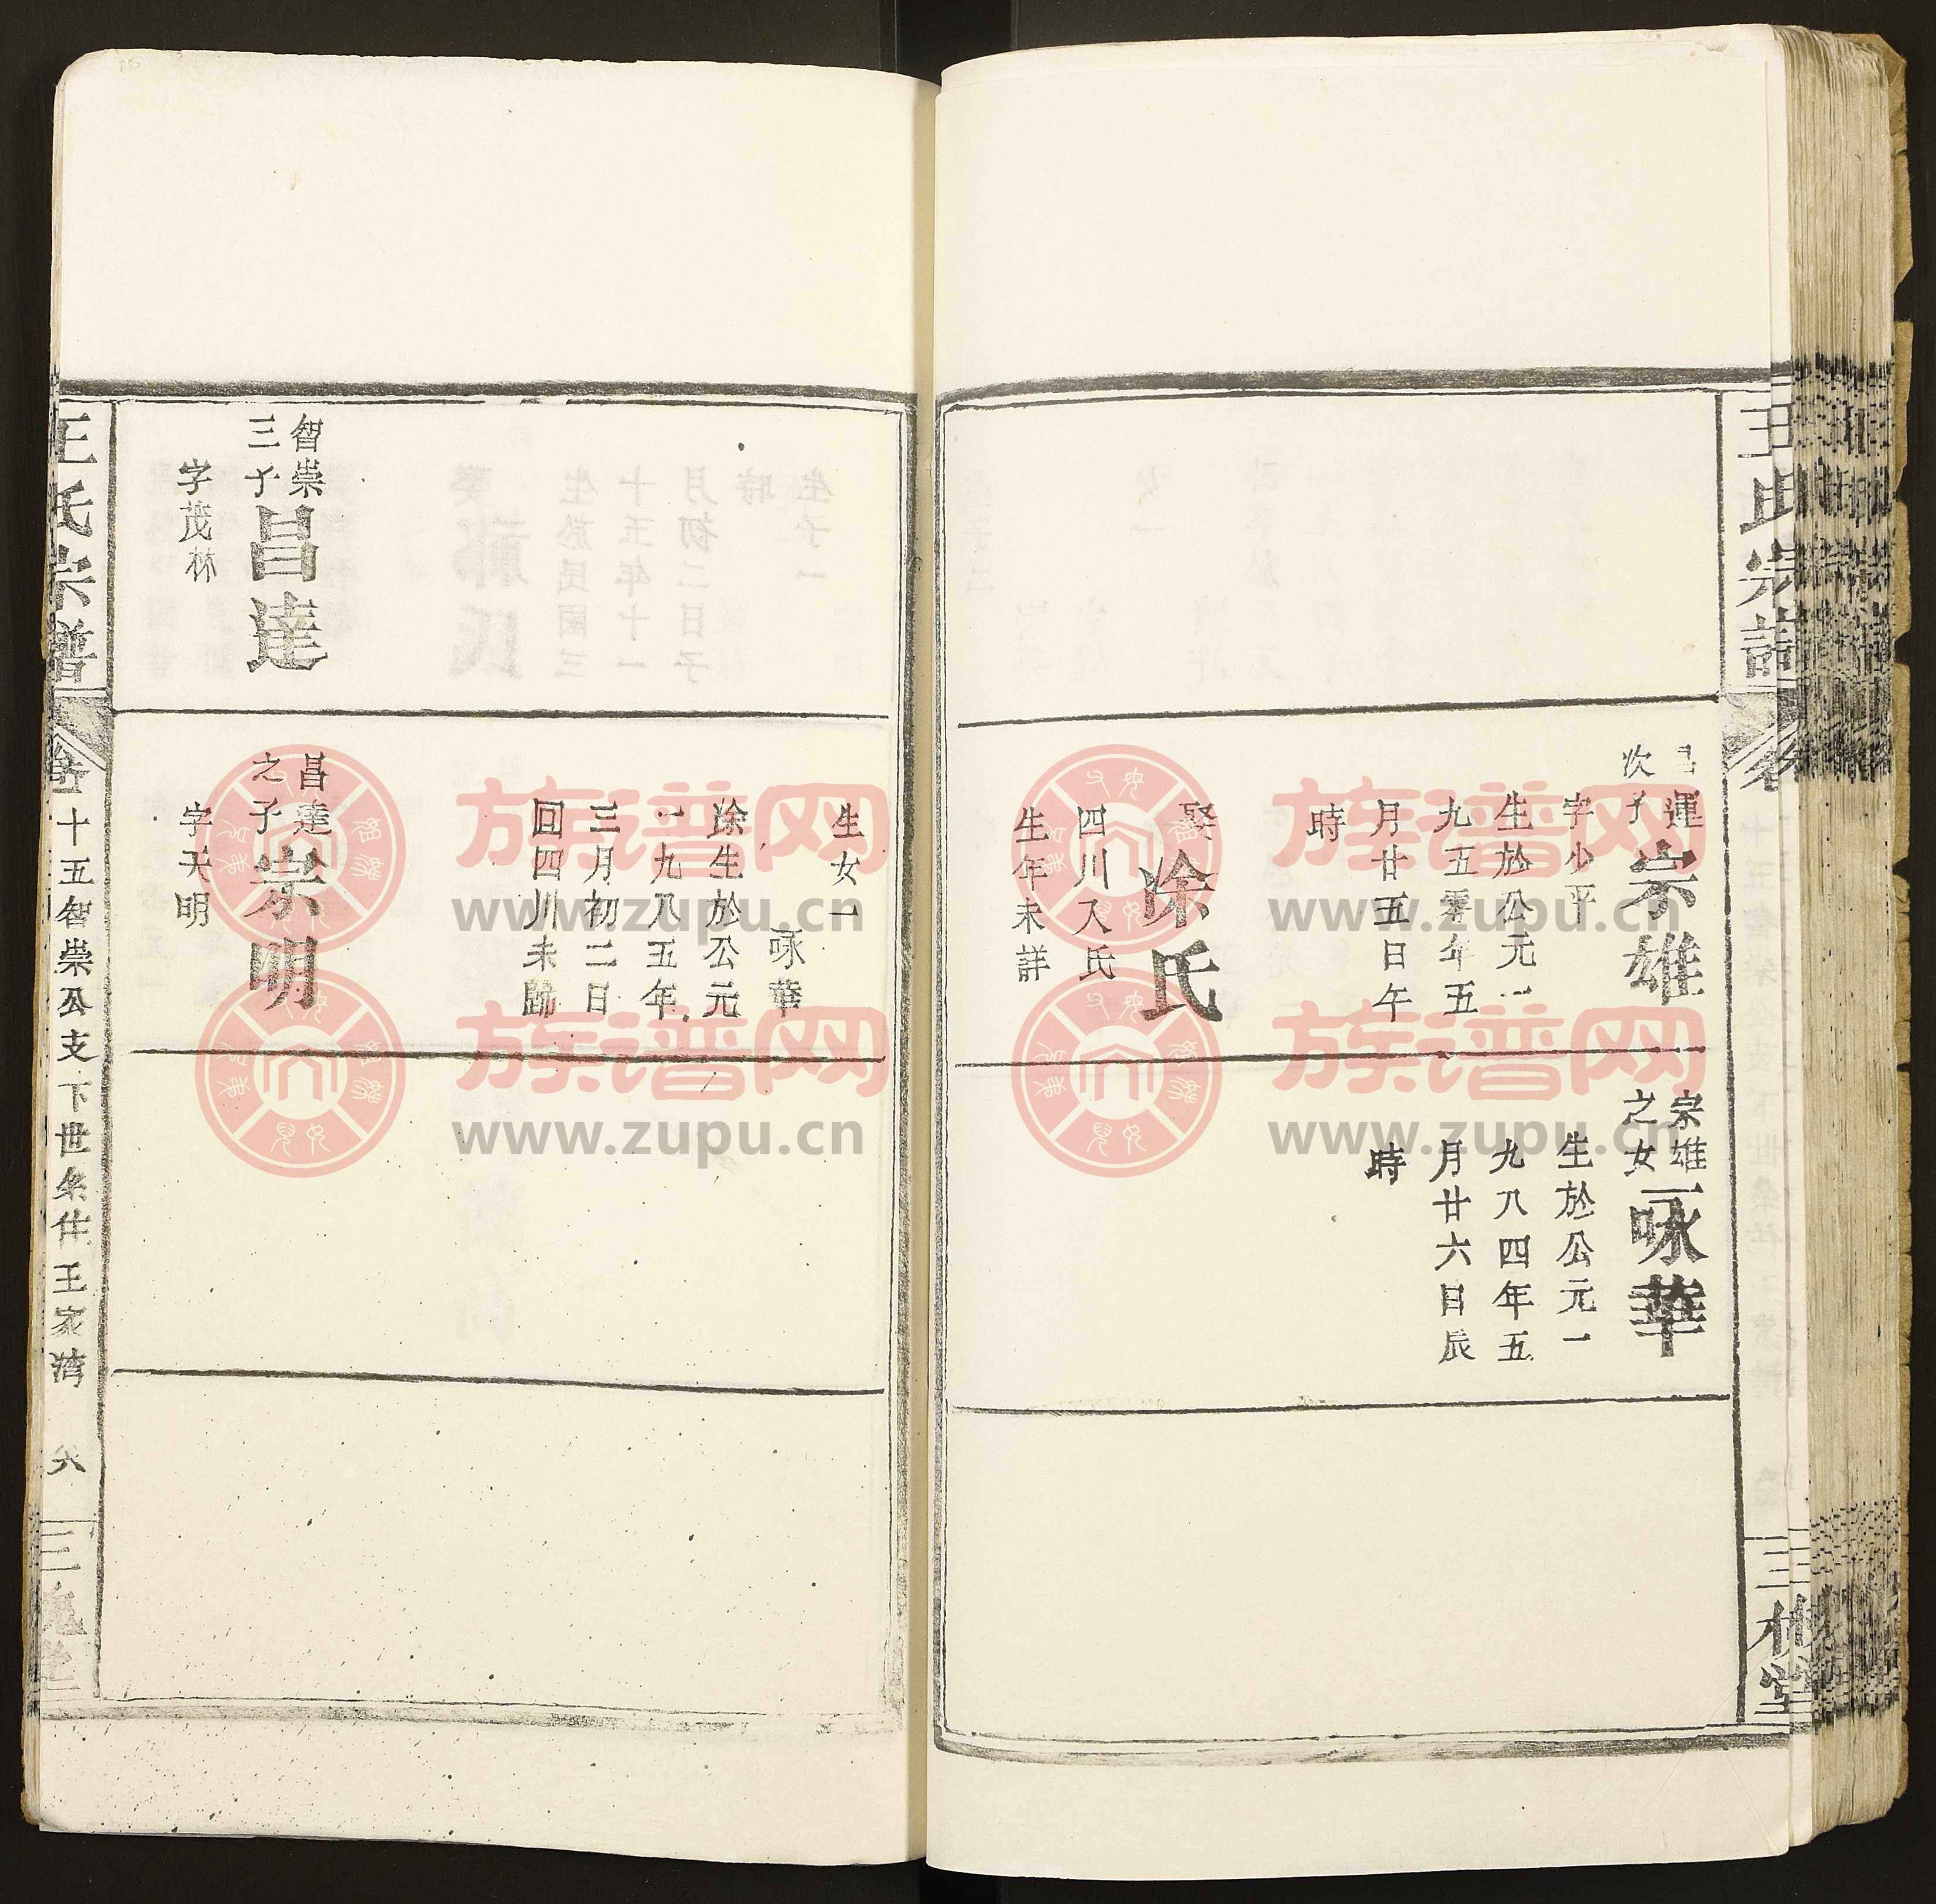 王氏宗譜
三槐堂
昌運
次子
宗雄
字少平
生於公元一
九五零年五
月廿五日午
時
娶
涂氏
四川人氏
生年未詳
宗雄
之女
咏華
生於公元一
九八四年五
月廿六日辰
時
生女一
咏華
涂生於公元
一九八五年
三月初二日
回四川未歸
智崇
三子
昌達
字茂林
昌達
之子
崇明
字天明
王氏宗譜
十五智崇公支下世系仕王家湾
六
三槐堂
族谱网
www.zupu.cn
族谱网
www.zupu.cn
族谱网
www.zupu.cn
族谱网
www.zupu.cn